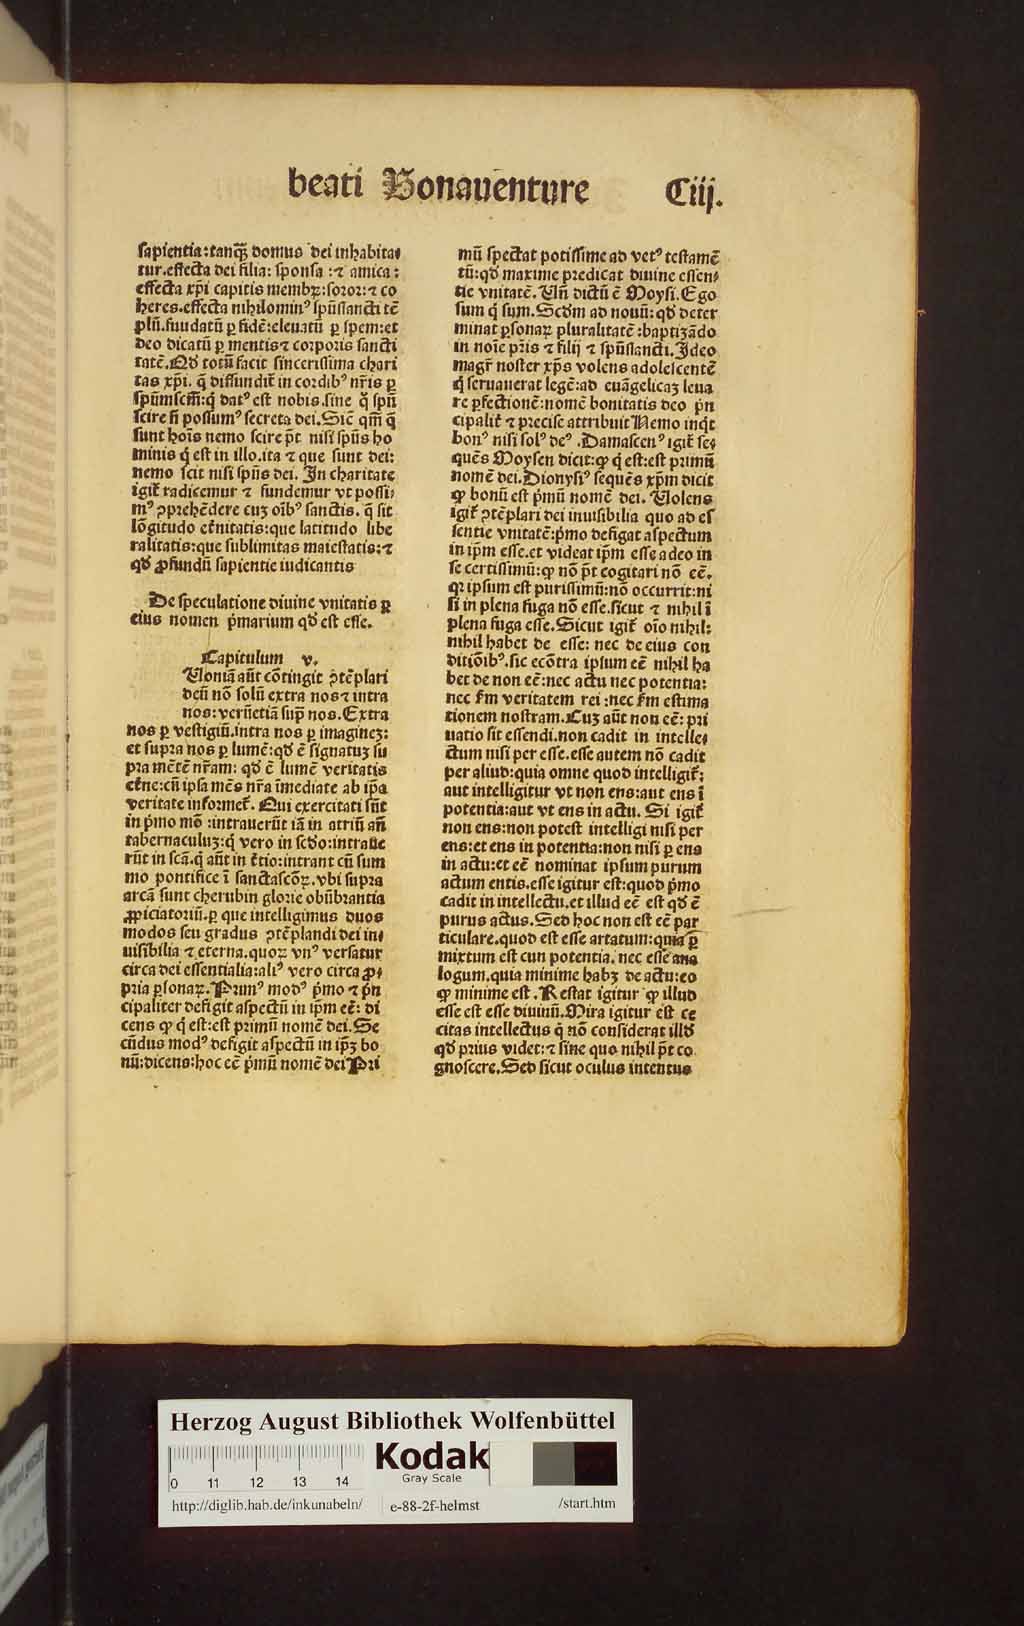 beati Bonauēnture Ciij.
sapientia:tanqȝ domus dei inhabita⸗
tur.effecta dei filia: sponsa :⁊ amica:
effecta xp̄i capitis membꝝ:soror:⁊ co
heres.effecta nihilominꝰ spūssancti tē
plū.fuudatū ꝑ fidē:eleuatū ꝑ spem:et
deo dicatū ꝑ mentis⁊ corporis sancti
tatē.Qď totū facit sincerissima chari
tas xp̄i. q̄ diffundit̄ in cordibꝰ nr̄is ꝑ
spūmscm̄:q̇ datꝰ est nobis.sine q̊ spū
scire n̄ possumꝰ secreta dei.Sic̄ qm̄ q̄
sunt hoīs nemo scire p̄t nisi spūs ho
minis q̇ est in illo.ita ⁊ que sunt dei:
nemo scit nisi spūs dei. In charitate
igit̄ radicemur ⁊ fundemur vt possi⸗
mꝰ ꝯprehēdere cuȝ oībꝰ sanctis. q̄ sit
lōgitudo et̄nitatis:que latitudo libe
ralitatis:que sublimitas maiestatis:⁊
qď ꝓfundū sapientie iudicantis
De speculatione diuine vnitatis ꝑ
eius nomen p̄marium qď est esse.
Capitulum v.
Uoniā aūt cōtingit ꝯtēplari
deū nō solū extra nos⁊ intra
nos:verūetiā sup̄ nos.Extra
nos ꝑ vestigiū.intra nos ꝑ imagineȝ:
et supra nos ꝑ lumē:qď ē signatuȝ su
pra mētē nr̄am: qď ē lumē veritatis
et̄ne:cū ipsa mēs nr̄a īmediate ab ip̄a
veritate informet̄. Qui exercitati sūt
in p̄mo mō :intrauerūt iā in atriū añ
tabernaculuȝ:q̇ vero in scďo:intraue
rūt in scā.q̇ aūt in t̄tio:intrant cū sum
mo pontifice ī sanctascōꝝ.vbi supra
arcā sunt cherubin glorie obūbrantia
ꝓpiciatoriū.ꝑ que intelligimus duos
modos seu gradus ꝯtēplandi dei in⸗
uisibilia ⁊ eterna.quoꝝ vnꝰ versatur
circa dei essentialia:aliꝰ vero circa ꝓ⸗
pria ꝑsonaꝝ.Primꝰ modꝰ p̄mo ⁊ p̄n
cipaliter defigit aspectū in ip̄m eē: di
cens ꝙ q̇ est:est primū nomē dei.Se
cūdus modꝰ defigit aspectū in ip̄ȝ bo
nū:dicens:hoc eē p̄mū nomē dei Pri
mū spectat potissime ad vetꝰ testamē
tū:qď maxime predicat diuine essen⸗
tie vnitatē. Uñ dictū ē Moysi.Ego
sum q̇ sum.Scďm ad nouū:qď deter
minat ꝑsonaꝝ pluralitatē:baptizādo
in noīe pr̄is ⁊ filij ⁊ spūssancti.Ideo
magr̄ noster xp̄s volens adolescentē
q̇ seruauerat legē:ad euāgelicaȝ leua
re ꝑfectionē:nomē bonitatis deo p̄n
cipalit̄ ⁊ precise attribuit Nemo inq̇t
bonꝰ nisi solꝰ deꝰ .Damascenꝰ igit̄ se⸗
quēs Moysen dicit:ꝙ q̇ est:est primū
nomē dei.Dionysiꝰ sequēs xp̄m dicit
ꝙ bonū est p̄mū nomē dei. Uolens
igit̄ ꝯtēplari dei inuisibilia quo ad es
sentie vnitatē:p̄mo defigat aspectum
in ip̄m esse.et videat ip̄m esse adeo in
se certissimū:ꝙ nō p̄t cogitari nō eē.
qꝛ ipsum est purissimū:nō occurrit:ni
si in plena fuga nō esse.sicut ⁊ nihil ī
plena fuga esse.Sicut igit̄ oīo nihil:
nihil habet de esse: nec de eius con
ditiōibꝰ.sic ecōtra ipsum eē nihil ha
bet de non eē:nec actu nec potentia:
nec ẜm veritatem rei :nec ẜm estima
tionem nostram.Cuȝ aūt non eē: pri
uatio sit essendi.non cadit in intelle⸗
ctum nisi per esse.esse autem nō cadit
per aliud:quia omne quod intelligit̄:
aut intelligitur vt non ens:aut ens ī
potentia:aut vt ens in actu. Si igit̄
non ens:non potest intelligi nisi per
ens:et ens in potentia:non nisi ꝑ ens
in actu:et eē nominat ipsum purum
actum entis.esse igitur est:quod p̄mo
cadit in intellectu.et illud eē est qď ē
purus actus.Sed hoc non est eē par
ticulare.quod est esse artatum:quia ꝑ
mixtum est cun potentia. nec esse ana
logum.quia minime habȝ de actu:eo
ꝙ minime est .Restat igitur ꝙ illud
esse est esse diuinū.Mira igitur est ce
citas intellectus q̇ nō considerat illď
qď prius videt:⁊ sine quo nihil p̄t co
gnoscere.Sed sicut oculus intentus
Herzog August Bibliothek Wolfenbüttel
Kodak
Gray Scale
0 11 12 13 14
http://diglib.hab.de/inkunabeln/ e-88-2f-helmst /start.htm